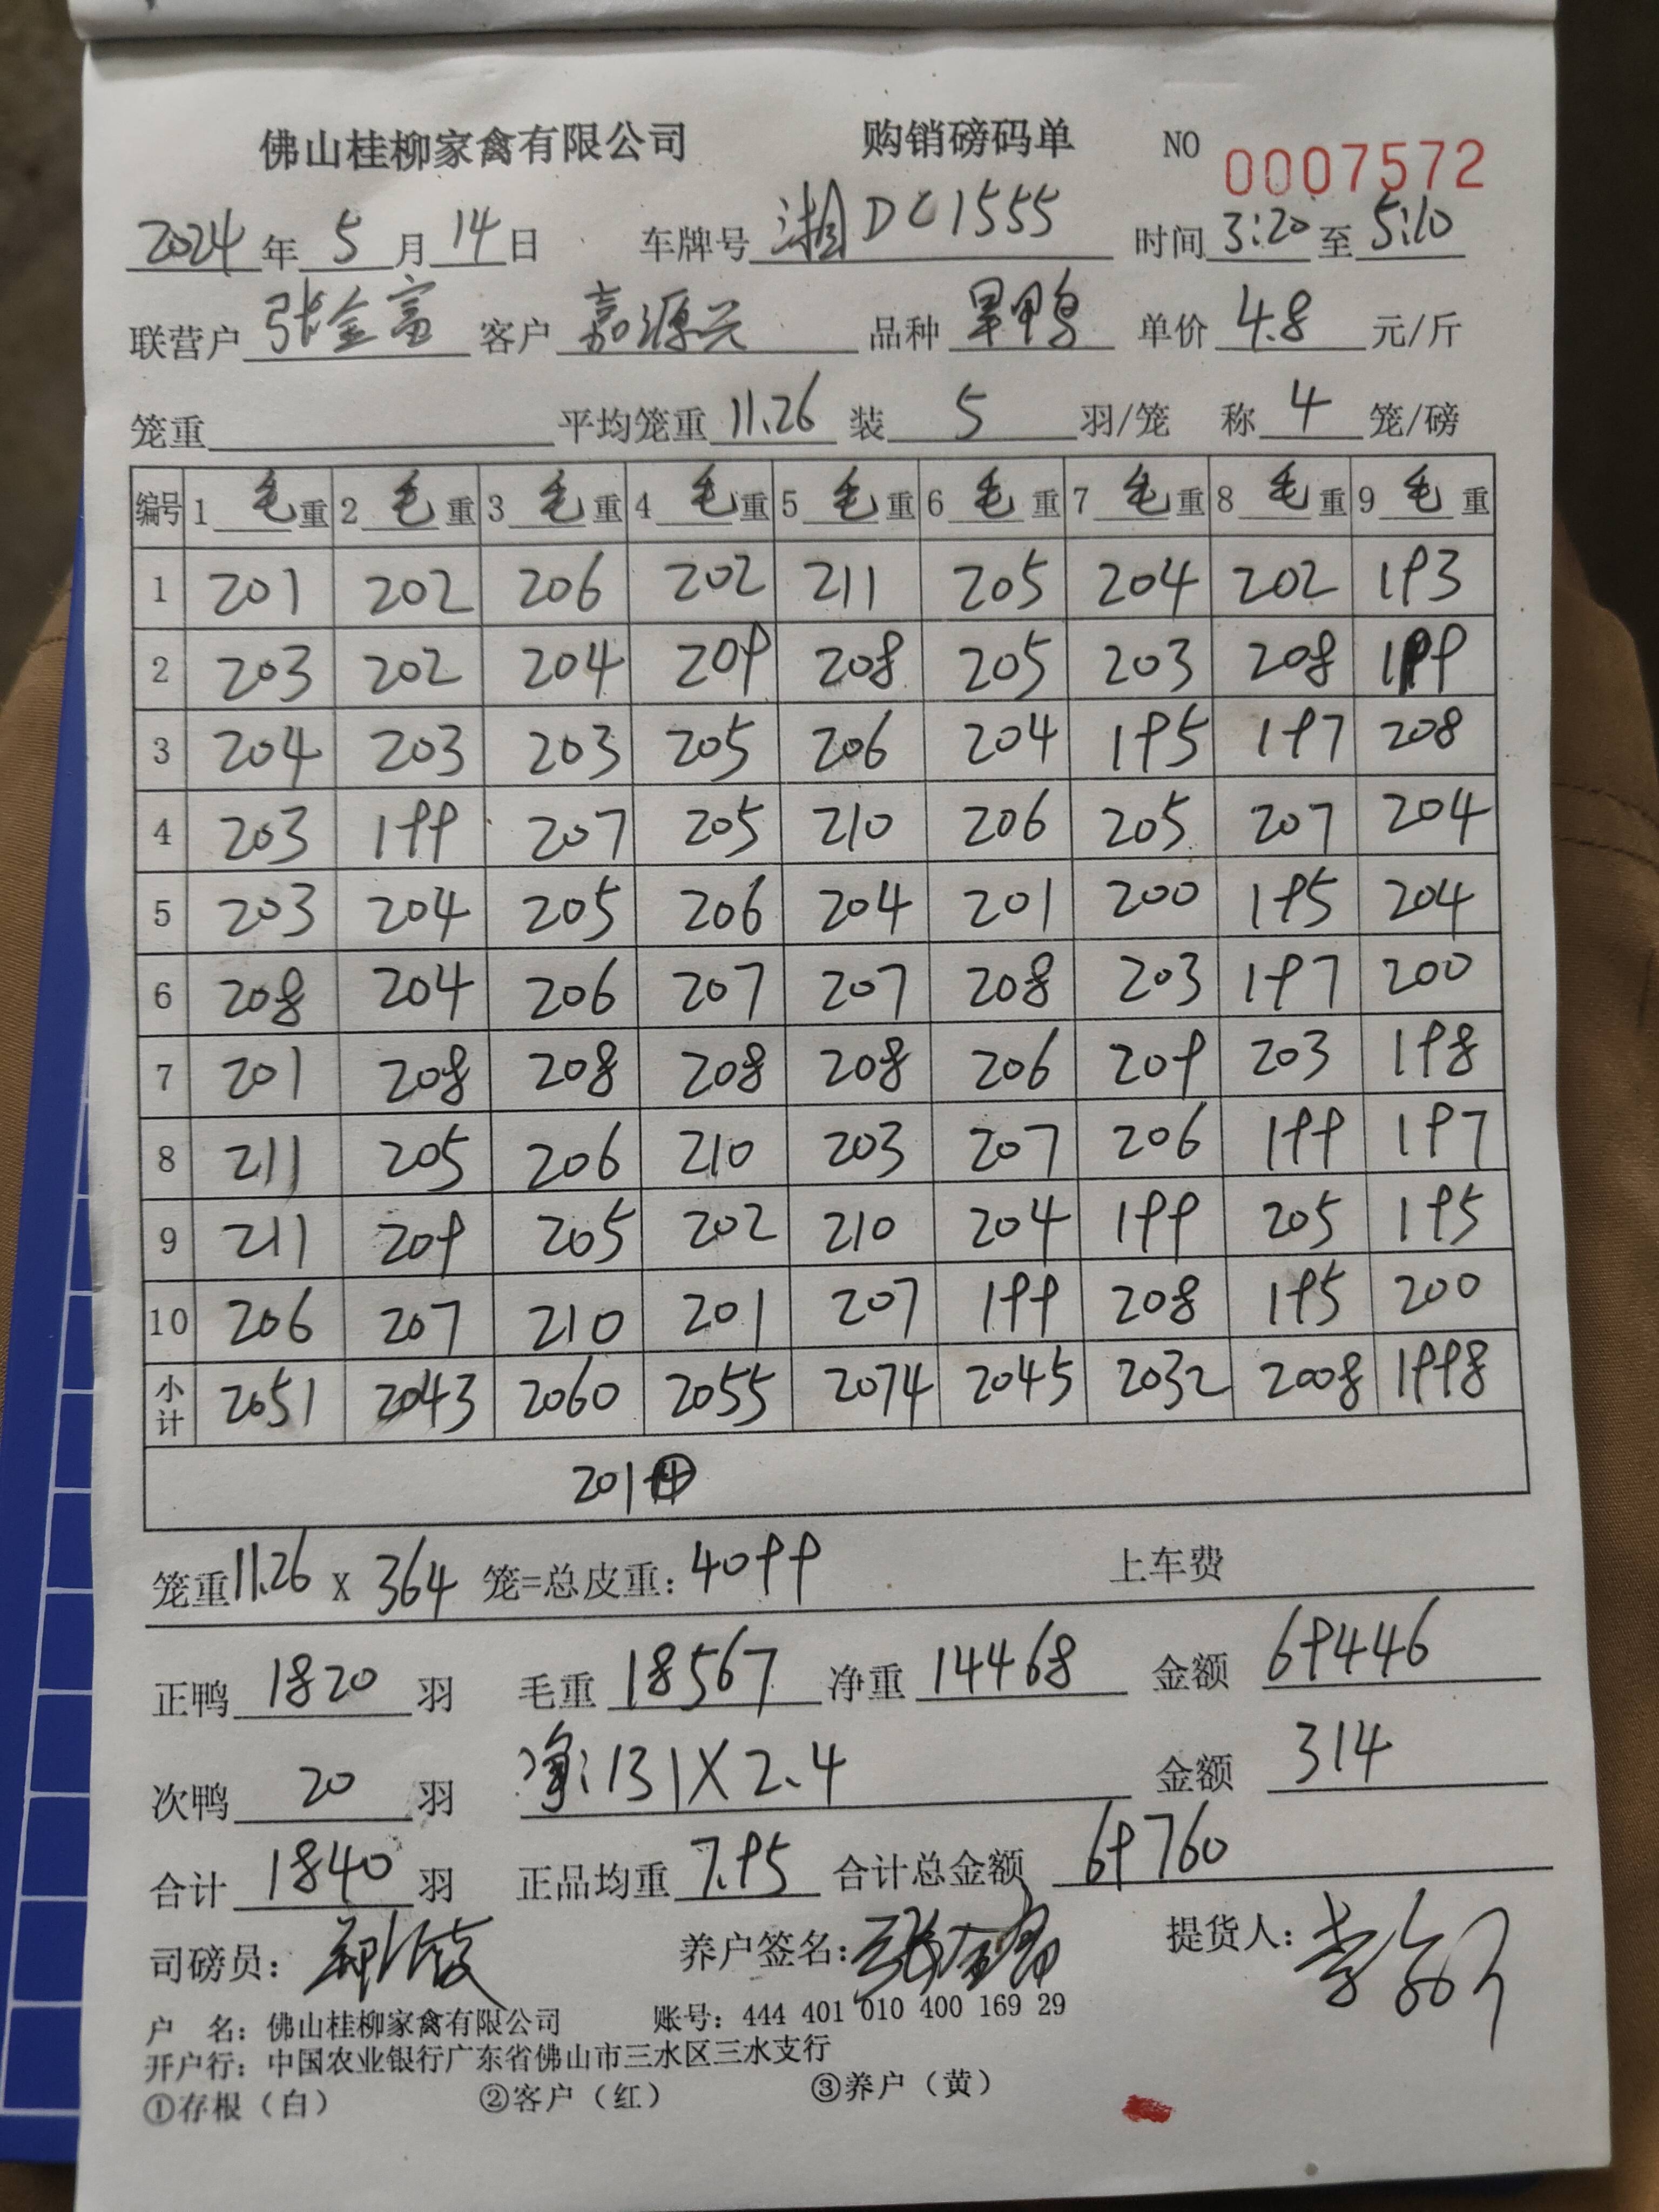 佛山桂柳家禽有限公司 购销磅码单 NO 0007572
2024年5月14日 车牌号 湘DC1555 时间3:20至5:10
联营户 张金富 客户 嘉源兴 品种 旱鸭 单价 4.8 元/斤
笼重 平均笼重 11.26 装 5 羽/笼 称 4 笼/磅
编号 1 毛重 2 毛重 3 毛重 4 毛重 5 毛重 6 毛重 7 毛重 8 毛重 9 毛重
1 201 202 206 202 211 205 204 202 193
2 203 202 204 209 208 205 203 208 199
3 204 203 203 205 206 204 195 197 208
4 203 199 207 205 210 206 205 207 204
5 203 204 205 206 204 201 200 195 204
6 208 204 206 207 207 208 203 197 200
7 201 208 208 208 208 206 209 203 198
8 211 205 206 210 203 207 206 199 197
9 211 209 205 202 210 204 199 205 195
10 206 207 210 201 207 199 208 195 200
小计 2051 2043 2060 2055 2074 2045 2032 2008 1998
201④
笼重11.26 X 364 笼=总皮重：4099 上车费
正鸭 1820 羽 毛重 18567 净重 14468 金额 69446
次鸭 20 羽 净：131X2.4 金额 314
合计 1840 羽 正品均重 7.95 合计总金额 69760
司磅员： 养户签名：张金富 提货人：
户 名：佛山桂柳家禽有限公司 账号：444 401 010 400 169 29
开户行：中国农业银行广东省佛山市三水区三水支行
①存根（白） ②客户（红） ③养户（黄）